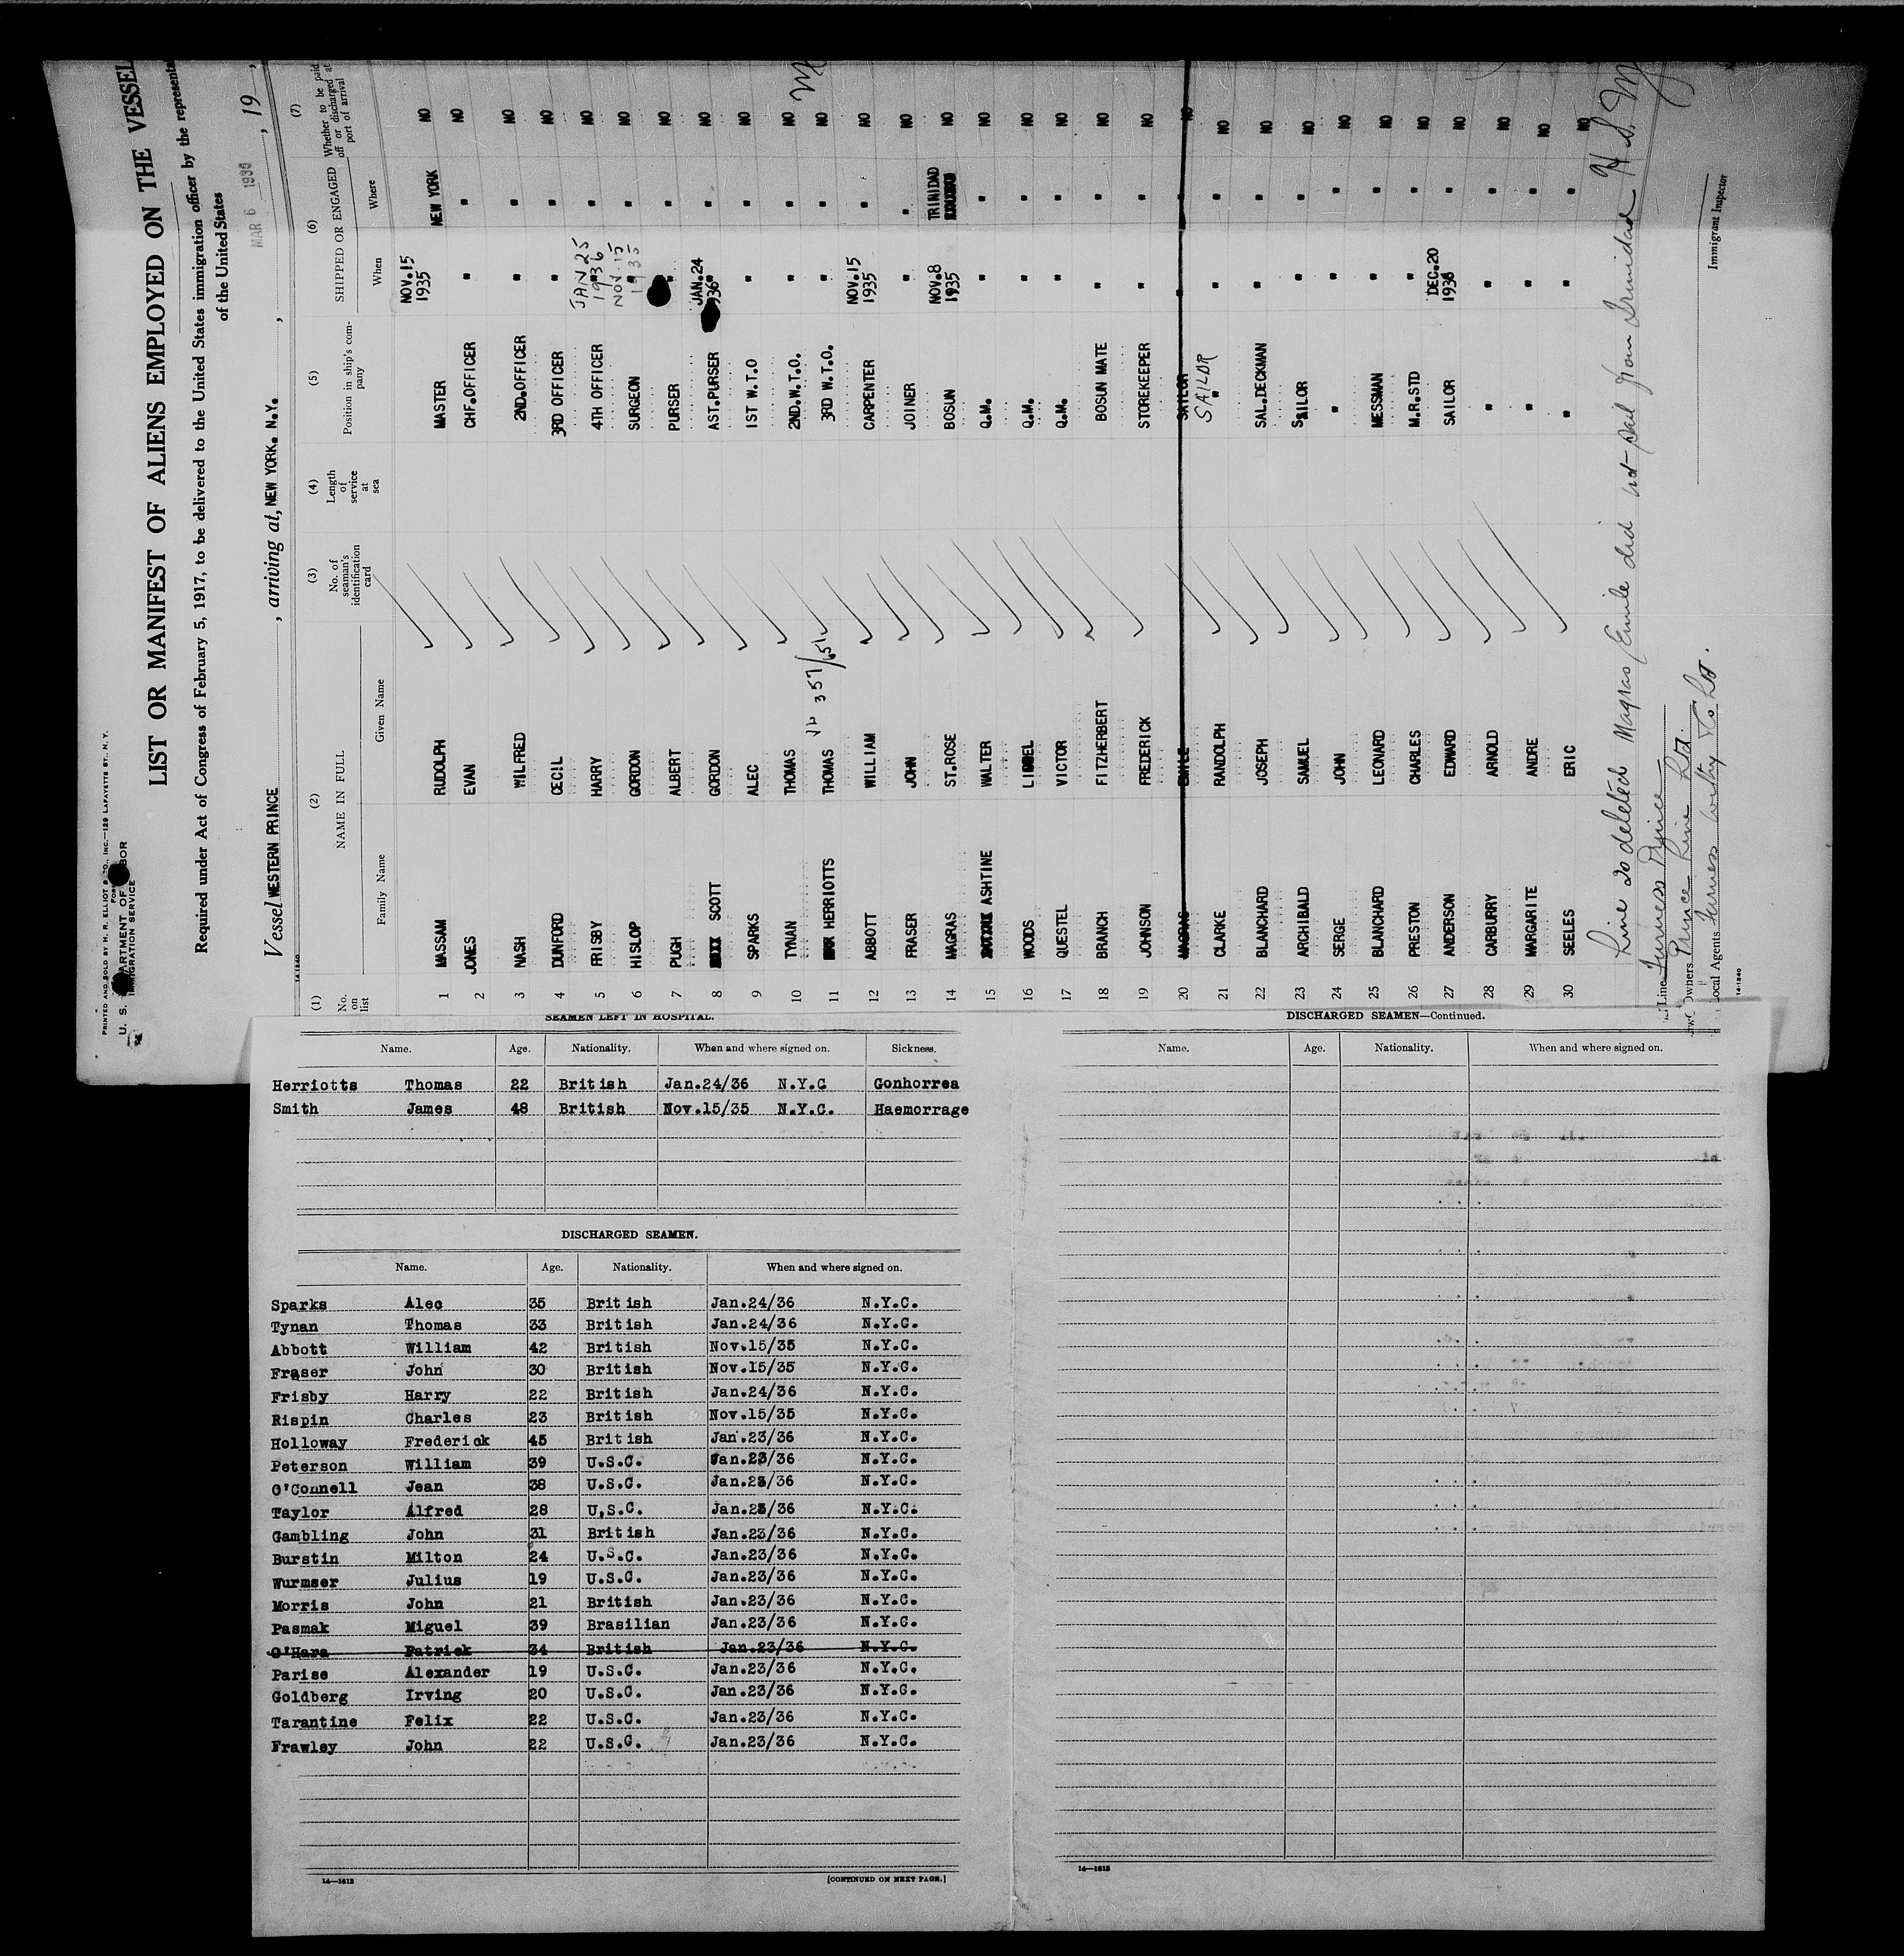 PRINTED AND SOLD BY H. R. ELLIOT & CO., INC.—129 LAFAYETTE ST., N. Y.
IMMIGRATION SERVICE
LIST OR MANIFEST OF ALIENS EMPLOYED ON THE VESSEL
Required under Act of Congress of February 5, 1917, to be delivered to the United States immigration officer by the representa
of the United States
Vessel WESTERN PRINCE , arriving at, NEW YORK. N.Y. , MAR 6 1936 , 19 ,
14-1240
(1) (2) (3) (4) (5) (6) (7)
No. on list
NAME IN FULL
Family Name Given Name
No. of seaman's identification card
Length of service at sea
Position in ship's company
SHIPPED OR ENGAGED
When Where
Whether to be paid off or discharged at port of arrival
1 MASSAM RUDOLPH MASTER NOV.15 1935 NEW YORK NO
2 JONES EVAN CHF.OFFICER " " NO
3 NASH WILFRED 2ND.OFFICER " " NO
4 DUNFORD CECIL 3RD OFFICER " " NO
5 FRISBY HARRY 4TH OFFICER JAN 25 1936 " NO
6 HISLOP GORDON SURGEON NOV. 15 1935 " NO
7 PUGH ALBERT PURSER " " NO
8 SCOTT GORDON AST.PURSER JAN.24 936 " NO
9 SPARKS ALEC 1ST W.T.O " " NO
10 TYNAN THOMAS 2ND.W.T.O. " " NO
11 HERRIOTTS THOMAS 357/51 3RD W.T.O. " " NO
12 ABBOTT WILLIAM CARPENTER NOV.15 1935 " NO
13 FRASER JOHN JOINER " " NO
14 MAGRAS ST.ROSE BOSUN NOV.8 1935 TRINIDAD NO
15 ASHTINE WALTER Q.M. " " NO
16 WOODS Q.M. " " NO
17 QUESTEL VICTOR Q.M. " " NO
18 BRANCH FITZHERBERT BOSUN MATE " " NO
19 JOHNSON FREDERICK STOREKEEPER " " NO
20 MAGRAS EMILE SAILOR " " NO
21 CLARKE RANDOLPH SAILOR " " " NO
22 BLANCHARD JOSEPH SAL.DECKMAN " " NO
23 ARCHIBALD SAMUEL SAILOR " " NO
24 SERGE JOHN " " " NO
25 BLANCHARD LEONARD MESSMAN " " NO
26 PRESTON CHARLES M.R.STD " " NO
27 ANDERSON EDWARD SAILOR DEC.20 1936 " NO
28 CARBURRY ARNOLD " " " NO
29 MARGARITE ANDRE " " " NO
30 SEELES ERIC " " " NO
Line 20 deleted Magras Emile did not sail from Trinidad
Line Furness Prince
Owners Prince Line Ltd.
Local Agents Furness Withy & Co Ltd.
Immigrant Inspector
14-1240
SEAMEN LEFT IN HOSPITAL.
Name. Age. Nationality. When and where signed on. Sickness.
Herriotts Thomas 22 British Jan.24/36 N.Y.C Gonhorrea
Smith James 48 British Nov.15/35 N.Y.C. Haemorrage
DISCHARGED SEAMEN.
Name. Age. Nationality. When and where signed on.
Sparks Alec 35 British Jan.24/36 N.Y.C.
Tynan Thomas 33 British Jan.24/36 N.Y.C.
Abbott William 42 British Nov.15/35 N.Y.C.
Fraser John 30 British Nov.15/35 N.Y.C.
Frisby Harry 22 British Jan.24/36 N.Y.C.
Rispin Charles 23 British Nov.15/35 N.Y.C.
Holloway Frederick 45 British Jan.23/36 N.Y.C.
Peterson William 39 U.S.C. Jan.23/36 N.Y.C.
O'Connell Jean 38 U.S.C. Jan.23/36 N.Y.C.
Taylor Alfred 28 U,S.C. Jan.23/36 N.Y.C.
Gambling John 31 British Jan.23/36 N.Y.C.
Burstin Milton 24 U.S.C. Jan.23/36 N.Y.C.
Wurmser Julius 19 U.S.C. Jan.23/36 N.Y.C.
Morris John 21 British Jan.23/36 N.Y.C.
Pasmak Miguel 39 Brasilian Jan.23/36 N.Y.C.
O'Hara Patrick 34 British Jan.23/36 N.Y.C.
Parise Alexander 19 U.S.C. Jan.23/36 N.Y.C.
Goldberg Irving 20 U.S.C. Jan.23/36 N.Y.C.
Tarantine Felix 22 U.S.C. Jan.23/36 N.Y.C.
Frawley John 22 U.S.C. Jan.23/36 N.Y.C.
14—1613
[CONTINUED ON NEXT PAGE.]
DISCHARGED SEAMEN—Continued.
Name. Age. Nationality. When and where signed on.
14—1613